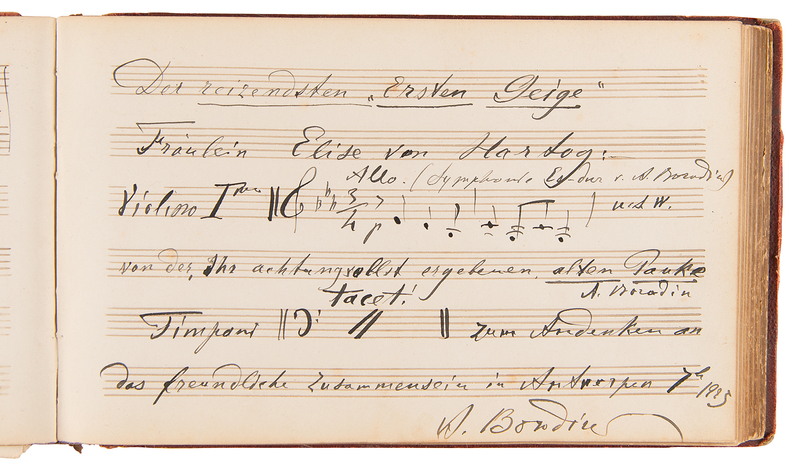 Der reizendsten „Ersten Geige"
Fräulein Elise von Hartog:
Allo. (Symphonie Es-dur v. A. Borodin)
Violino Imo p u.s.W.
von der, Ihr achtungvollst ergebenen, alten Pauke
A. Borodin
tacet!
Timponi zum Andenken an
das freundliche Zusammensein in Antwerpen
A. Borodin